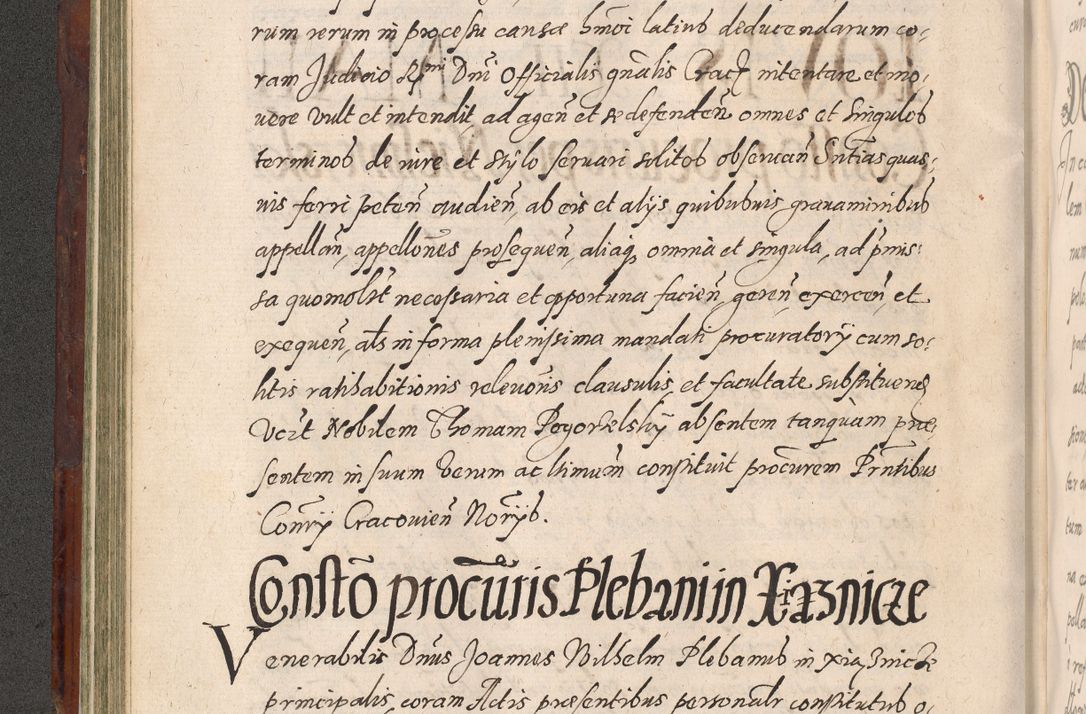 rum rerum in processu causæ hmoi latius deducendarum co-
ram Judicio Rmi Dni Officialis gnalis Crac intentare et mo-
uere vult et intendit, ad agen et se defenden omnes et singulos
terminos de iure et stylo seruari solitos obseruan Sntias quas-
uis ferri peten audien, ab eis et alijs quibusuis grauaminibus
appellan, appellones prosequen, aliaq omnia et singula, ad prmis-
sa quomolbt necessaria et opportuna facien, geren exercen, et
exequen, als in forma plenissima mandati procuratorij cum so-
litis ratihabitionis releuonis clausulis et facultate substituendi
Vczt Nobilem Thomam Pogorzelskij absentem tanquàm præ-
sentem in suum verum ac ltimum constituit procurem Prntibus
Conrij Cracouien Norijs.
Constõ procuris Plebani in Xiaznicze
Venerabilis Dnus Joannes Wilhelm Plebanus in Xiaznicze
principalis, coram Actis præsentibus personalr constitutus o-